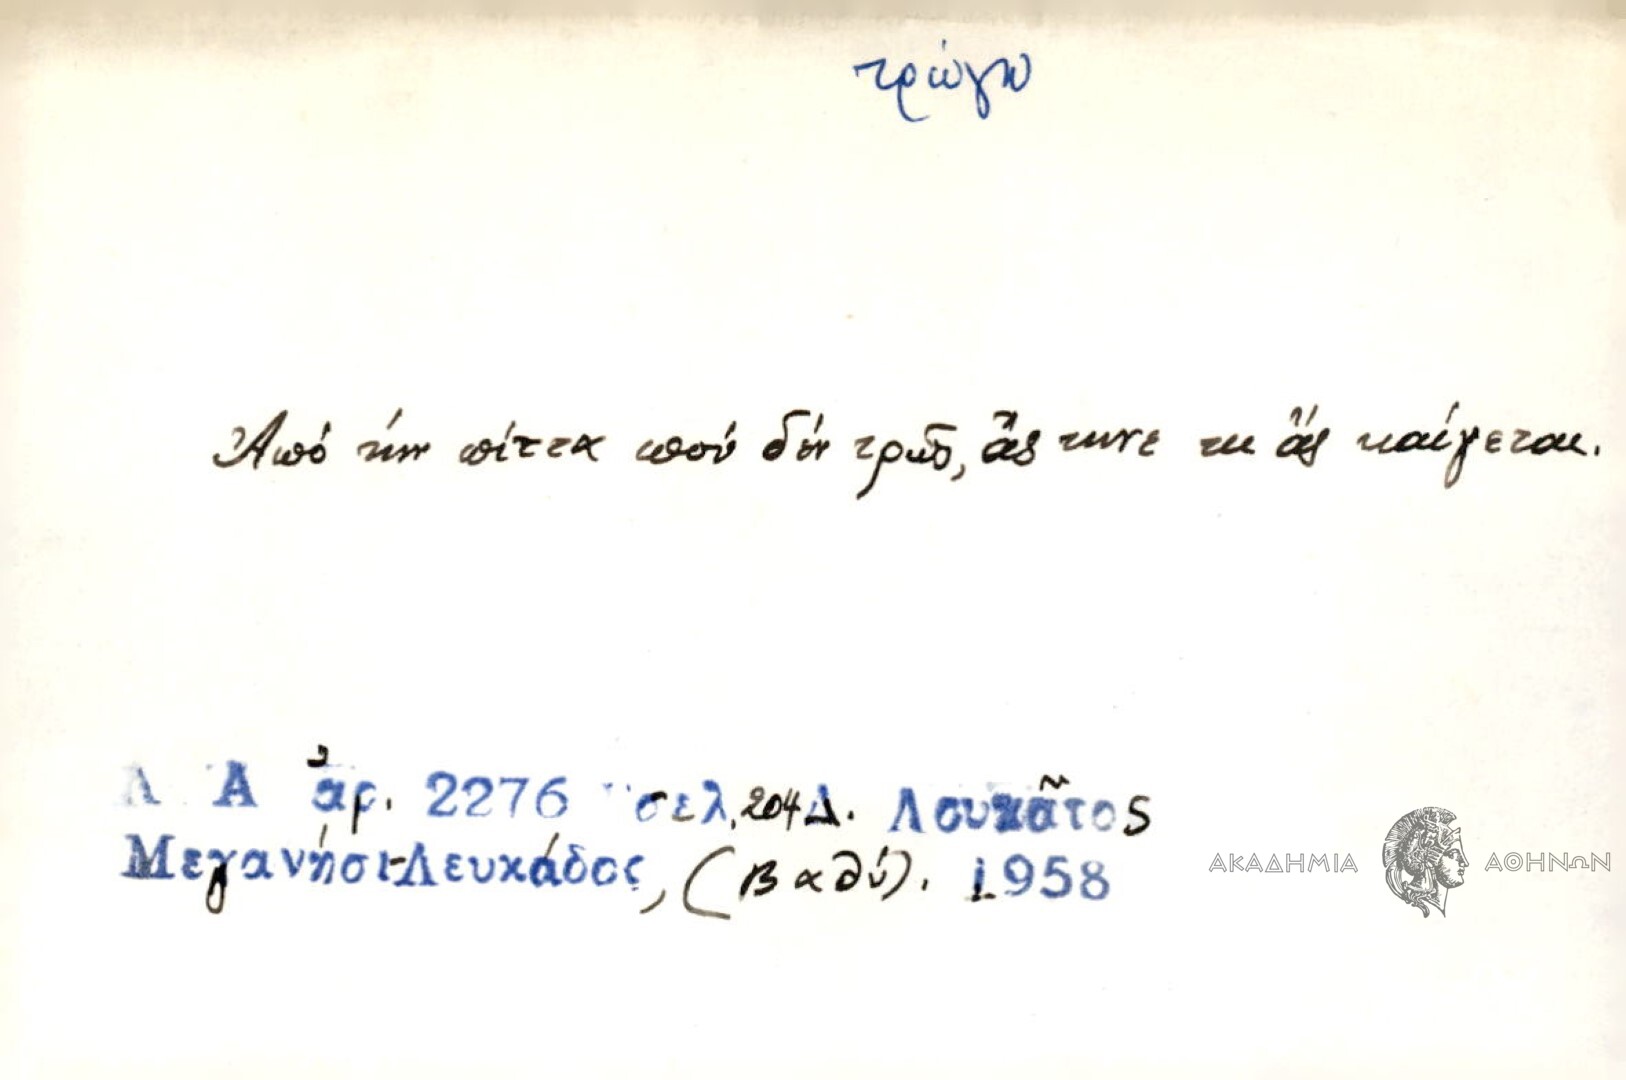 τρώγω
Ἀπό τήν πίττα πού δέν τρῶς, ἄς τηνε
Λ Α ἀρ. 2276 σελ. 204 Δ. Λουκᾶτος
Μεγανήσι-Λευκάδος, (Βαθύ). 1958
ΑΚΑΔΗΜΙΑ ΑΘΗΝΩΝ